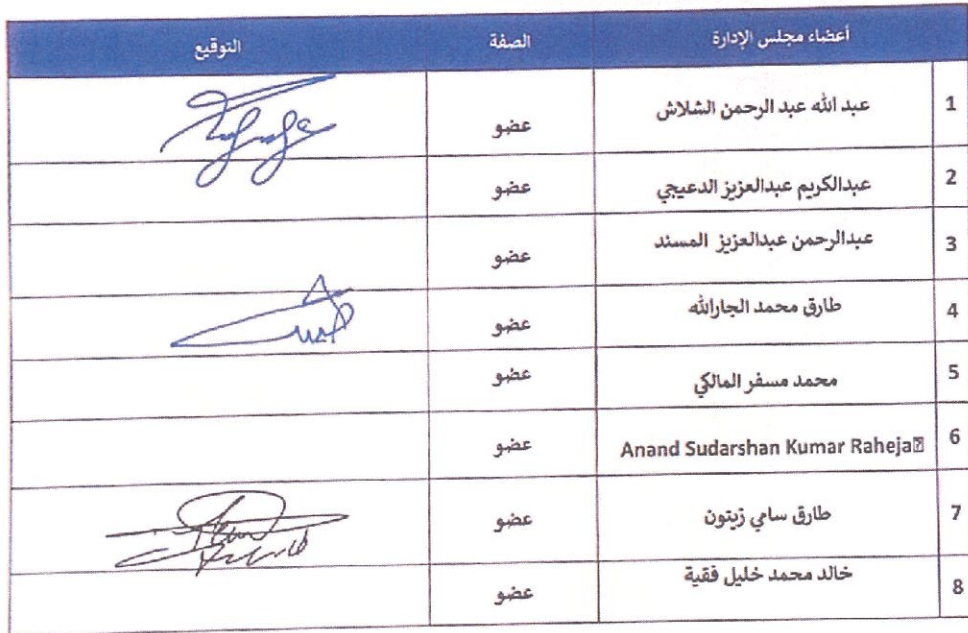 أعضاء مجلس الإدارة الصفة التوقيع
1 عبد الله عبد الرحمن الشلاش عضو
2 عبدالكريم عبدالعزيز الدعيجي عضو
3 عبدالرحمن عبدالعزيز المسند عضو
4 طارق محمد الجارالله عضو
5 محمد مسفر المالكي عضو
6 Anand Sudarshan Kumar Raheja عضو
7 طارق سامي زيتون عضو
8 خالد محمد خليل فقية عضو